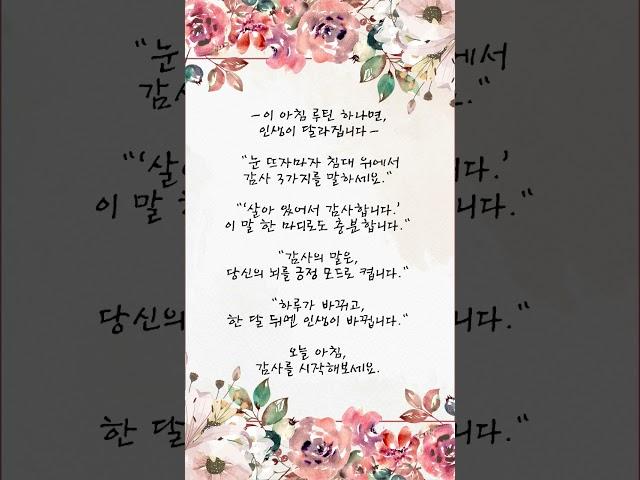 - 이 아침 루틴 하나면,
인생이 달라집니다 -
"눈 뜨자마자 침대 위에서
감사 3가지를 말하세요."
"'살아 있어서 감사합니다.'
이 말 한 마디로도 충분합니다."
"감사의 말은,
당신의 뇌를 긍정 모드로 켭니다."
"하루가 바뀌고,
한 달 뒤엔 인생이 바뀝니다."
오늘 아침,
감사를 시작해보세요.